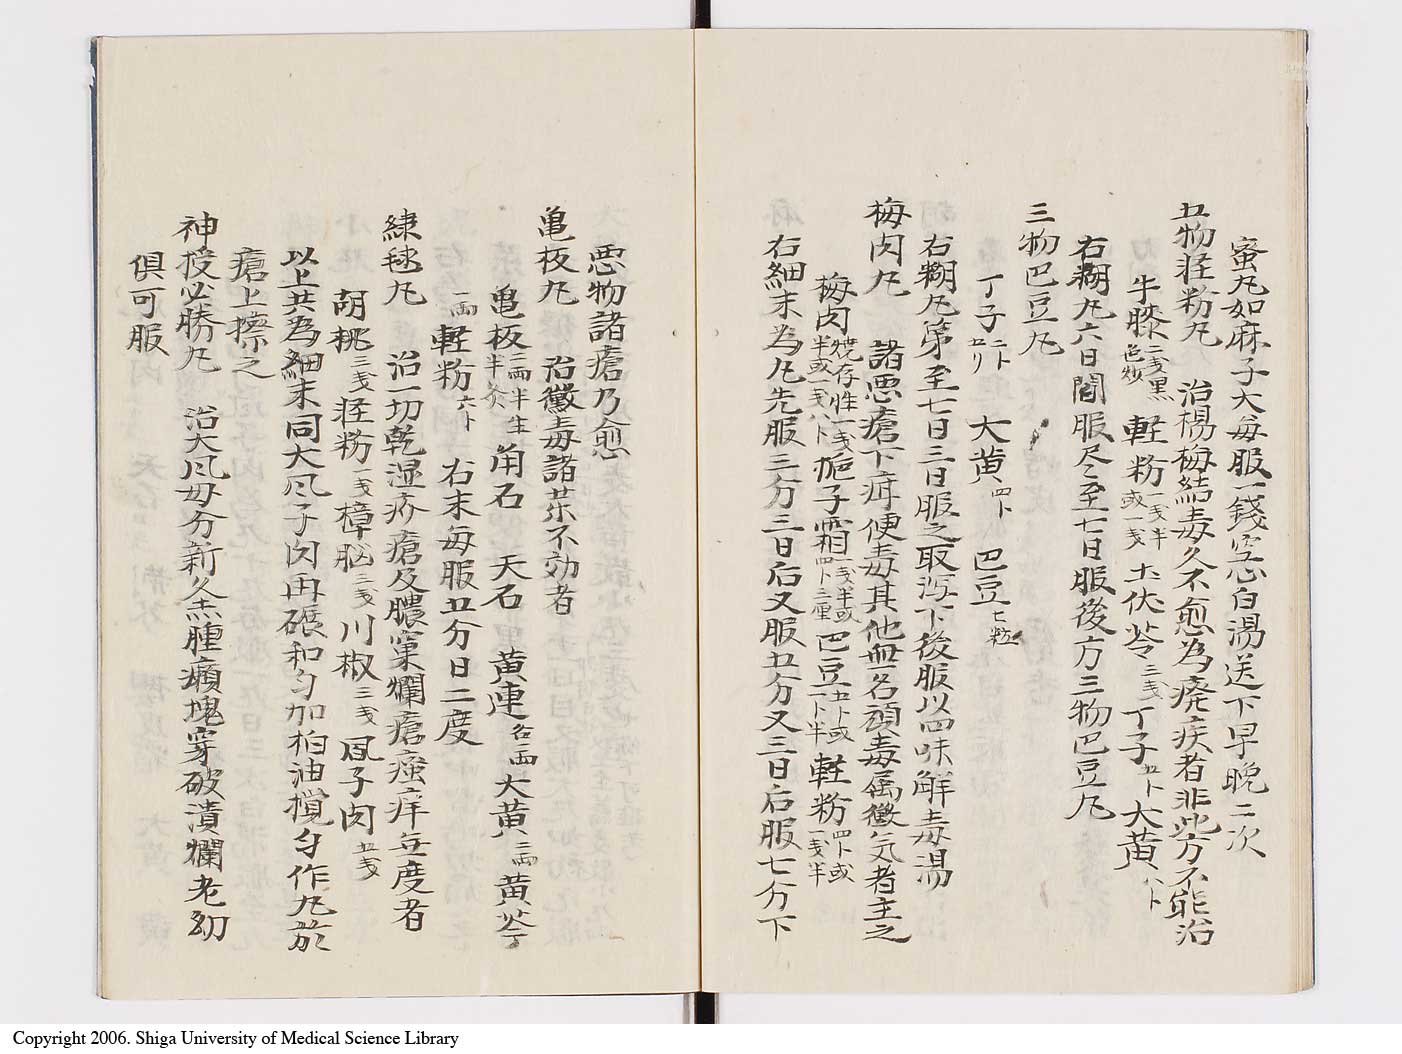 蜜丸如麻子大毎服一錢空心白湯送下早晩二次
五物軽粉丸　治楊梅結毒久不愈為癈疾者非此方不能治
牛膝二戔黒色炒　軽粉一戔半或一戔　土伏苓三戔　丁子五卜　大黄八卜
右糊丸六日間服尽至七日服後方三物巴豆丸
三物巴豆丸
丁子二卜五リ　大黄四卜　巴豆七粒
右糊丸第至七日三日服之取瀉下後服以四味解毒湯
梅肉丸　諸悪瘡下疳便毒其他無名頑毒属黴気者主之
梅肉焼存性一戔半或一戔八卜　梔子霜一戔半或四卜二厘　巴豆五卜或一卜半　軽粉四卜或一戔半
右細末為丸先服三分三日后又服五分又三日后服七分下
悪物諸瘡乃愈
亀板丸　治黴毒諸薬不効者
亀板二両半生半灸　角石　天石　黄連各一両　大黄二両　黄芩
一両　軽粉六卜　右末毎服五分日二度
繍毬丸　治一切乾湿疥瘡及膿窠爛瘡瘙痒無度者
胡桃三戔　軽粉一戔　樟脳三戔　川椒三戔　風子肉五戔
以上共為細末同大風子肉再碾和匀加柏油攪匀作丸於
瘡上擦之
神授必勝丸　治大風毋分新久黒腫癩塊穿破潰爛老幼
俱可服
Copyright 2006. Shiga University of Medical Science Library